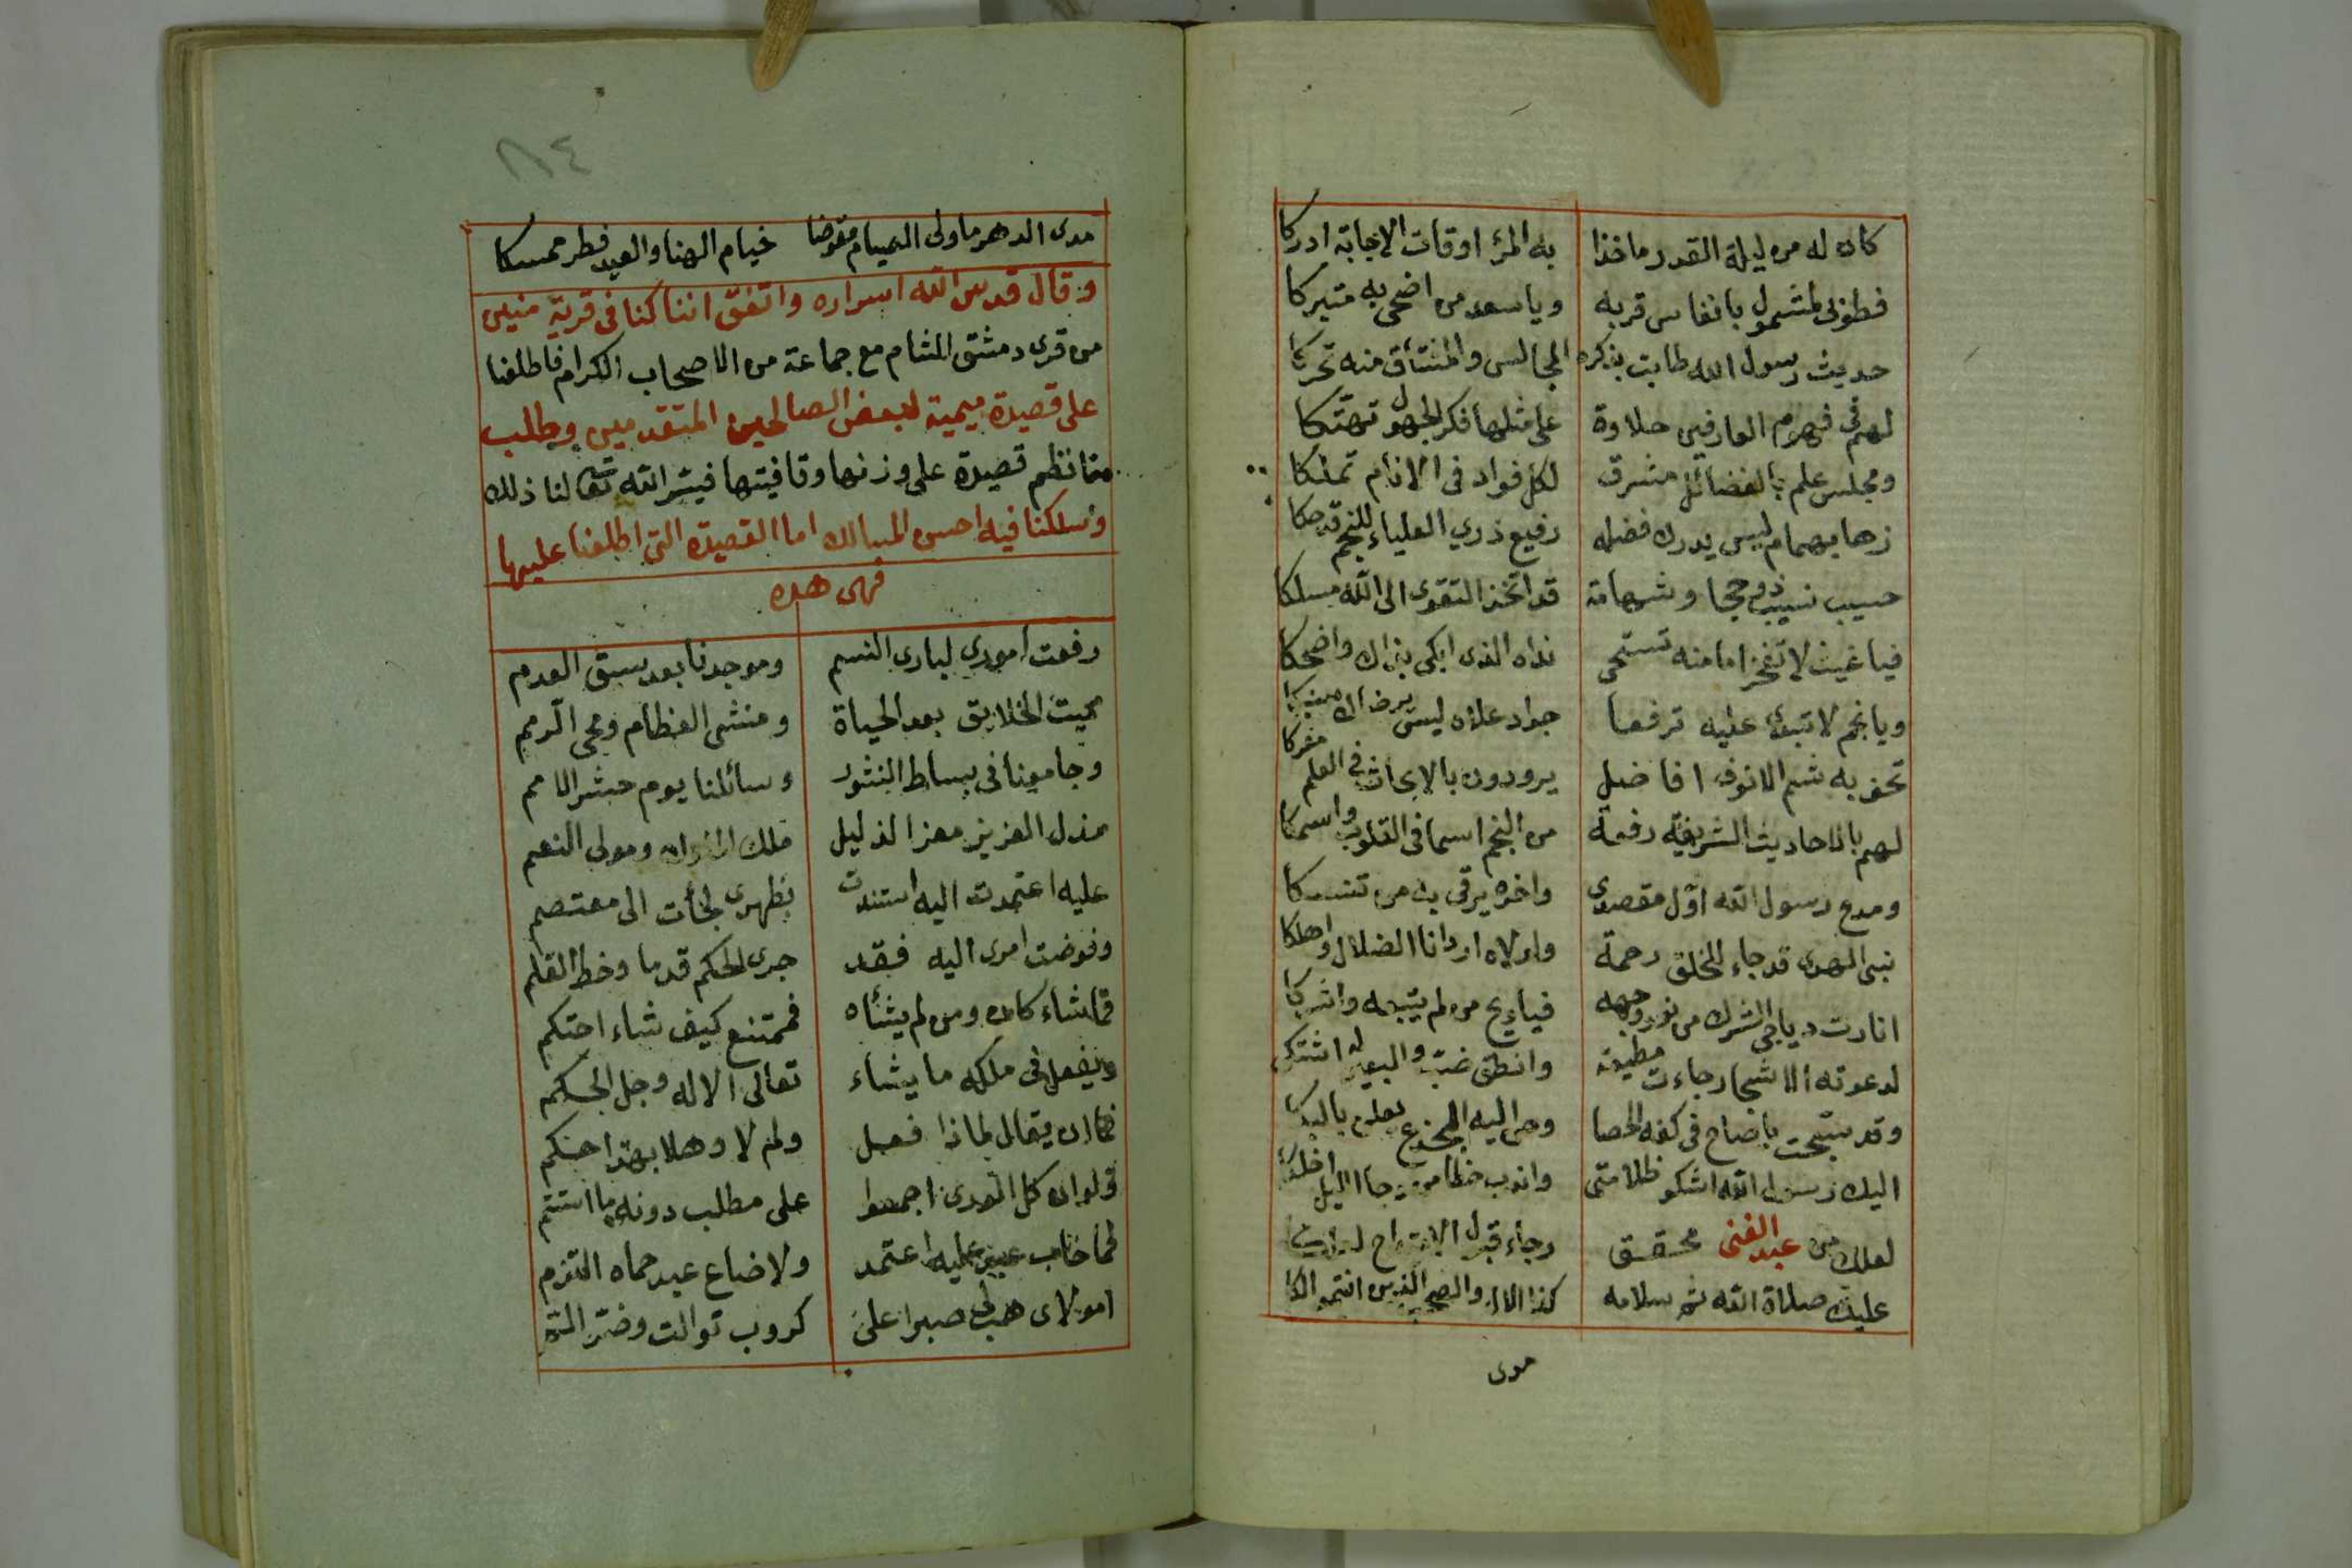 كان له من ليلة القدر ماخذا به المرء اوقات الاجابة ادركا
فطوبى لمشمول بانفاس قربه وياسعد من اضحى به متبركا
حديث رسول الله طابت بذكره المجالس والمشتاق منه تحركا
لهم في فهوم العارفين حلاوة على مثلها فكر الجهول تهتكا
ومجلس علم بالفضائل مشرق لكل فواد في الانام تملكا
زها بهمام ليس يدرك فضله رفيع ذري العلياء للنجم قد حكا
حسيب نسيب ذو حجا وشهامة قد اتخذ التقوى الى الله مسلكا
فيا غيث لا تفخر اما منه تستحي نداه الذى ابكى بذاك واضحكا
ويا نجم لا تبدى عليه ترفعا جواد علاه ليس يرضاك
تحف به شم الانوف افاضل يرودون بالابحاث في العلم معركا
لهم بالاحاديث الشريفة رفعة من النجم اسما في القلوب واسمكا
ومدح رسول الله اول مقصدي واخره يرقى به من تنسكا
نبى الهدى قد جاء للخلق رحمة ولولاه اردانا الضلال واهلكا
انارت دياجى الشرك من نور وجهه فيا ويح من لم يتبعه واشركا
لدعوته الاشجار جاءت مطيعة وانطق ضب والبعير له اشتكى
وقد سبحت بافصاح في كفه الحصا وحن اليه الجذع يعلن بالبكا
اليك رسول الله اشكو ظلامتى وانت خطا من دجا الليل احلكا
لعلك من عبد الغنى محقق رجاء قبول
عليك صلاة الله ثم سلامه كذا الال والصحب الذين انتموا لكا
مدى
٨٤
مدى الدهر ماولى الصيام مقوضا خيام الهنا والعيد فطر ممسكا
وقال قدس الله اسراره واتفق اننا كنا في قرية منين
من قرى دمشق الشام مع جماعة من الاصحاب الكرام فاطلعنا
على قصيدة ميمية لبعض الصالحين المتقدمين وطلب
منا نظم قصيدة على وزنها وقافيتها فيسر الله تعالى لنا ذلك
وسلكنا فيه احسن المسالك اما القصيدة التى اطلعنا عليها
فهى هذه
رفعت امورى لبارى النسم وموجدنا بعد سبق العدم
مميت الخلايق بعد الحياة ومنشى العظام ومحى الرمم
وجامعنا في بساط النشور وسائلنا يوم حشر الامم
مذل العزيز معز الذليل ملك الملوك ومولى النعم
عليه اعتمدت اليه استندت بظهرى لجأت الى معتصم
وفوضت امرى اليه فقد جرى الحكم قدما وخط القلم
فماشاء كان ومن لم يشأه فممتنع كيف شاء احتكم
ويفعل في ملكه ما يشاء تعالى الاله وجل الحكم
فما ان يقال لماذا فعل ولم لا وهلا بهذا حكم
فلو ان كل الورى اجمعوا على مطلب دونه ما استتم
فما خاب عبد عليه اعتمد ولا ضاع عبد حماه التزم
امولاى هب لي صبرا على كروب توالت وضر الم